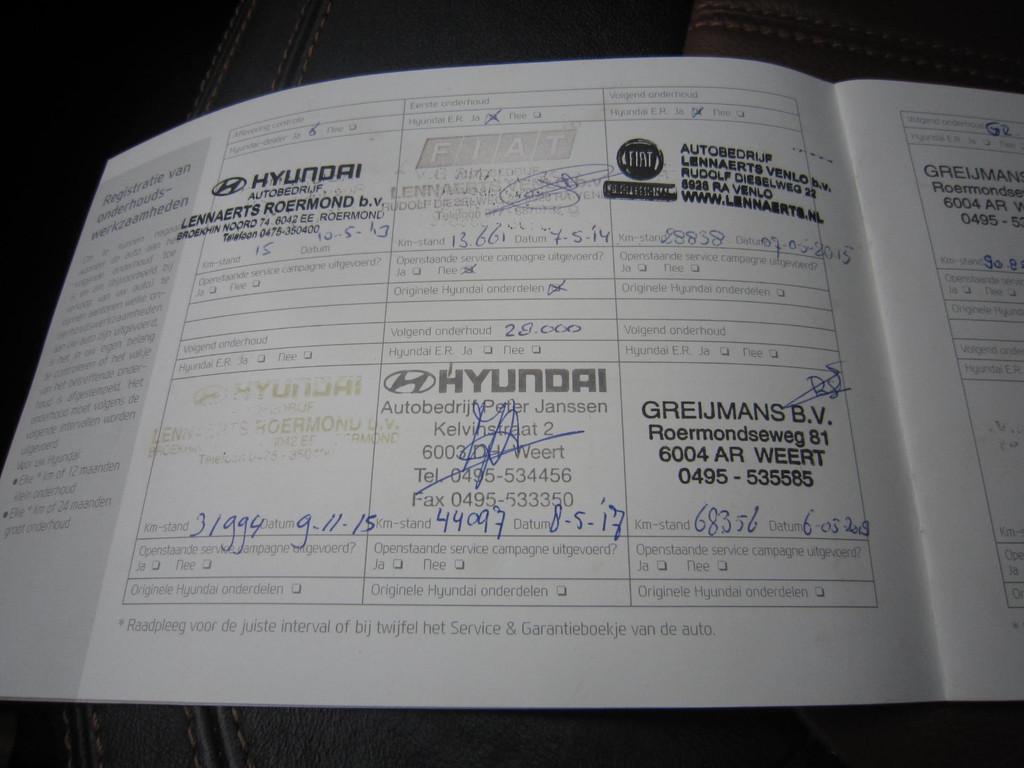 Registratie van
onderhouds-
werkzaamheden
volgende intervallen worden
uitgevoerd.
Voor uw Hyundai
• Elke * km of 12 maanden
klein onderhoud
• Elke * km of 24 maanden
groot onderhoud
Aflevering controle
Hyundai-dealer Ja Nee
HYUNDAI
AUTOBEDRIJF
LENNAERTS ROERMOND b.v.
BROEKHIN NOORD 74, 6042 EE ROERMOND
Telefoon 0475-350400
10-5-13
Km-stand 15 Datum
Openstaande service campagne uitgevoerd?
Ja Nee
Eerste onderhoud
Hyundai E.R. Ja Nee
FIAT
Km-stand 13.661 Datum 7-5-14
Openstaande service campagne uitgevoerd?
Ja Nee
Originele Hyundai onderdelen
Volgend onderhoud
Hyundai E.R. Ja Nee
FIAT
PROFESSIONAL
AUTOBEDRIJF
LENNAERTS VENLO b.v.
RUDOLF DIESELWEG 22
5928 RA VENLO
WWW.LENNAERTS.NL
Km-stand 28838 Datum 07-05-2015
Openstaande service campagne uitgevoerd?
Ja Nee
Originele Hyundai onderdelen
Volgend onderhoud
Hyundai E.R. Ja Nee
HYUNDAI
Km-stand 31994 Datum 9-11-15
Openstaande service campagne uitgevoerd?
Ja Nee
Originele Hyundai onderdelen
Volgend onderhoud 29.000
Hyundai E.R. Ja Nee
HYUNDAI
Autobedrijf Peter Janssen
Kelvinstraat 2
Weert
Tel. 0495-534456
Fax 0495-533350
Km-stand 44097 Datum 8-5-'17
Openstaande service campagne uitgevoerd?
Ja Nee
Originele Hyundai onderdelen
Volgend onderhoud
Hyundai E.R. Ja Nee
GREIJMANS B.V.
Roermondseweg 81
6004 AR WEERT
0495 - 535585
Km-stand 68356 Datum 6-05-2019
Openstaande service campagne uitgevoerd?
Ja Nee
Originele Hyundai onderdelen
* Raadpleeg voor de juiste interval of bij twijfel het Service & Garantieboekje van de auto.
Volgend onderhoud
Hyundai E.R.
GREIJMANS
Roermondse
6004 AR W
0495 - 53
Km-stand
Openstaande
Ja Nee
Originele Hyundai
Volgend onderhoud
Hyundai E.R.
Km-
Ope
Ja